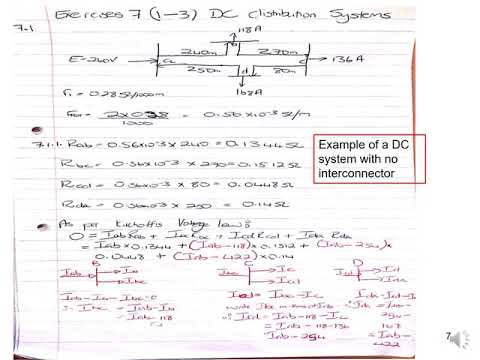 Exercises 7 (1-3) DC distribution Systems
7.1.
118A
E=240V
240m
b
270m
a
c
136A
250m
d
80m
168A
r₁ = 0.28Ω/1000m
= 0.56×10⁻³ Ω/m
1000
7.1.1. Rab = 0.56×10⁻³ × 240 = 0.1344Ω
Rbc = 0.56×10⁻³ × 270 = 0.1512Ω
Rcd = 0.56×10⁻³ × 80 = 0.0448Ω
Rda = 0.56×10⁻³ × 250 = 0.14Ω
Example of a DC
system with no
interconnector
As per Kirchoffs Voltage laws
0 = IabRab + IbcRbc + IcdRcd + Ida Rda
= Iab × 0.1344 + (Iab-118) × 0.1512 + (Iab-254) ×
0.0448 + (Iab-422) × 0.14
B
C
D
Iab
Ib
Ibc
Ibc
Ic
Icd
Icd
Id
Iab-Ib-Ibc=0
∴ Ibc = Iab-Ib
= Iab-118
Icd = Ibc-Ic
∴ Icd = Iab-118-Ic
= Iab-118-136
= Iab-254
168
= Iab-
422
7